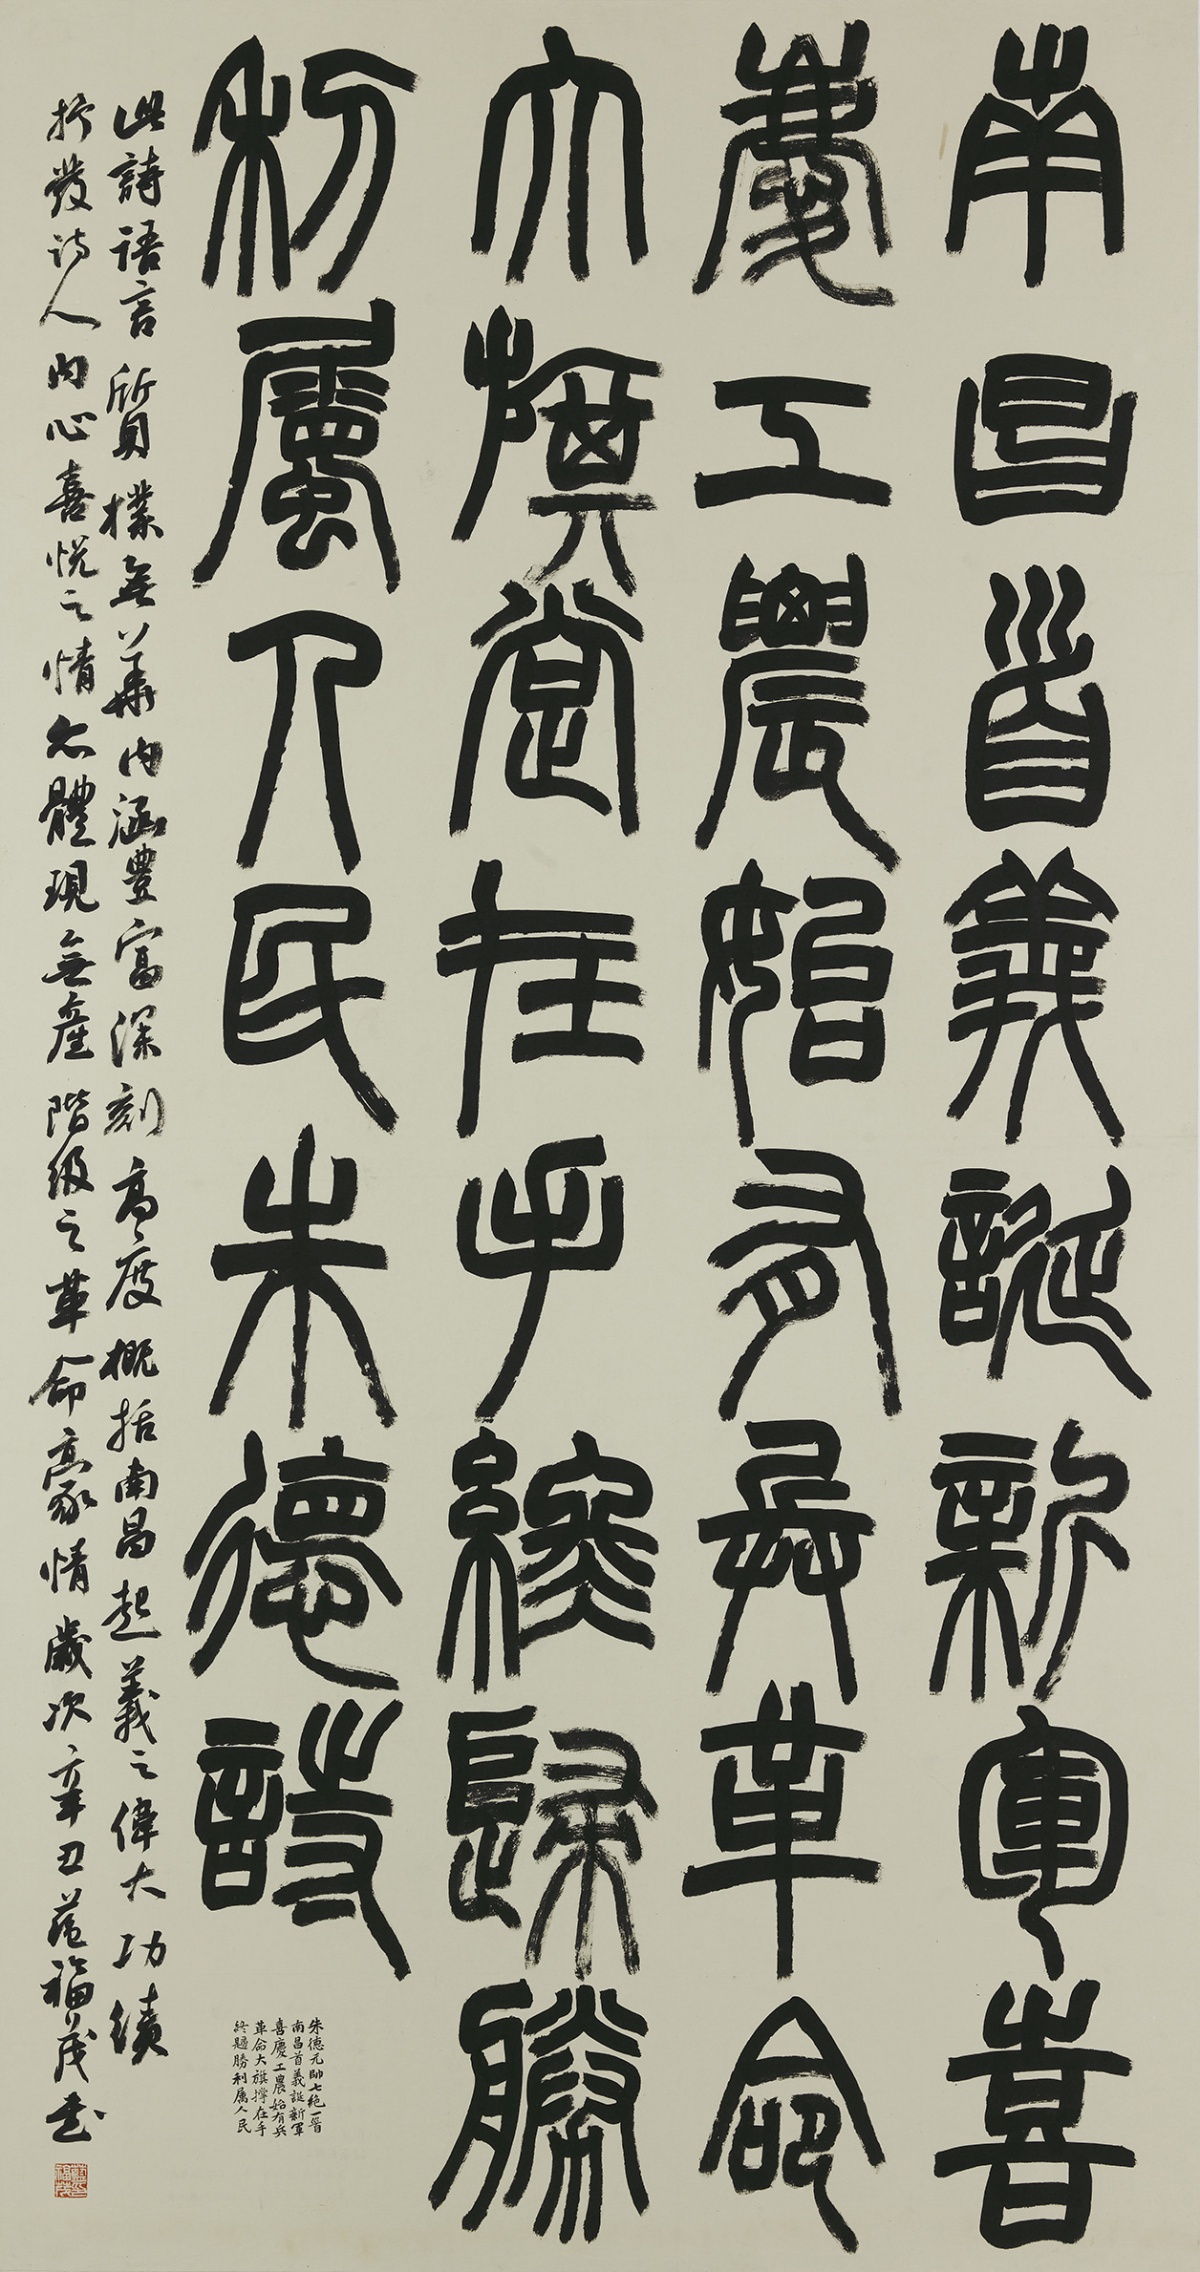 南昌首義誕新軍喜
慶工農始有兵革命
大旗撐在手終歸勝
利屬人民朱德詩
朱德元帥七絕一首
南昌首義誕新軍
喜慶工農始有兵
革命大旗撐在手
終歸勝利属人民
此詩語言質樸無華内涵豐富深刻高度概括南昌起義之偉大功績
抒發詩人内心喜悦之情亦體現無產階級之革命豪情歲次辛丑范福茂書